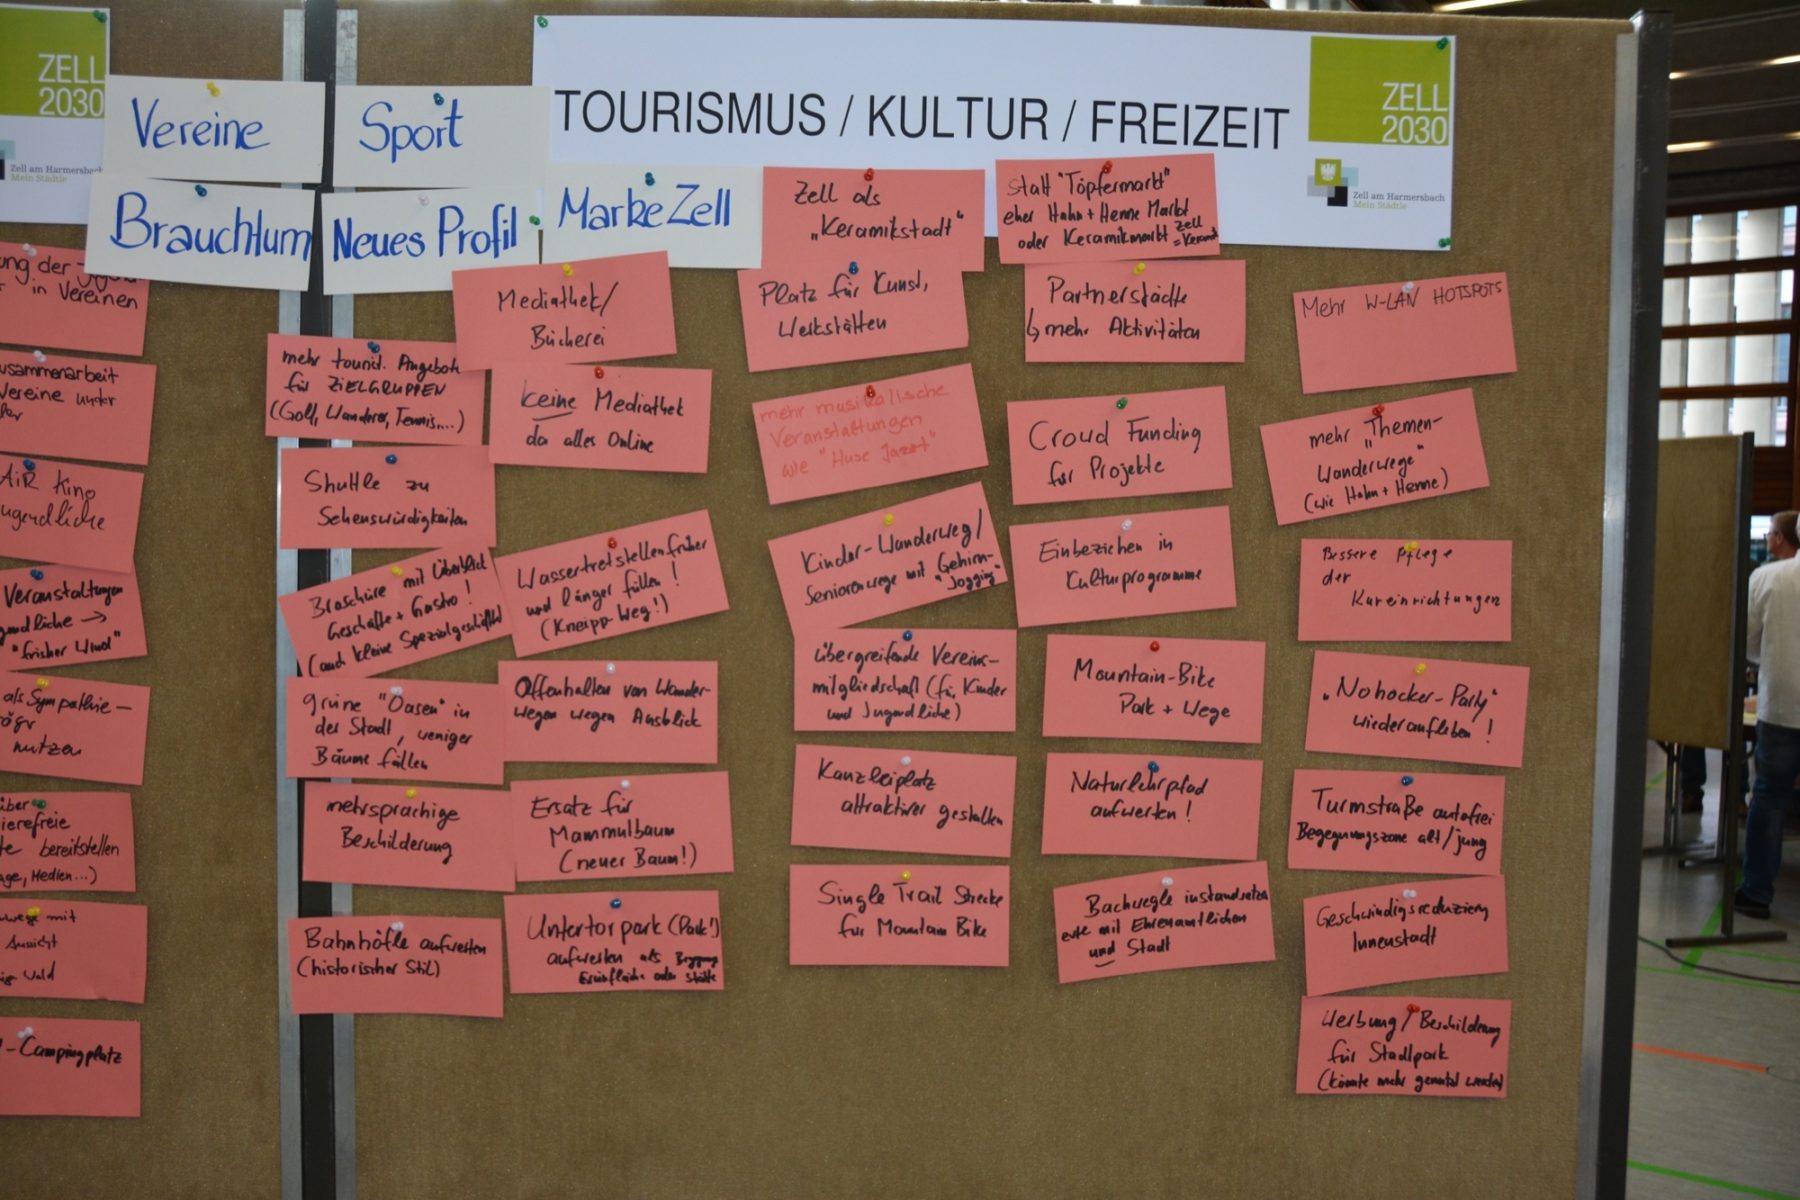 ZELL
2030
Zell am Harmersbach
Mein Städtle
Vereine
Sport
Brauchtum
Neues Profil
Marke Zell
TOURISMUS / KULTUR / FREIZEIT
ZELL
2030
Zell am Harmersbach
Mein Städtle
ung der
in Vereinen
usammenarbeit
Vereine unter
AiR Kino
ugendliche
Veranstaltungen
gendliche →
"frischer Wind"
als Sympathie-
nutzen
über
ierefreie
te bereitstellen
age, Medien...)
wege mit
Aussicht
Wald
-Campingplatz
mehr tourist. Angebote
für ZIELGRUPPEN
(Golf, Wanderer, Tennis....)
Shuttle zu
Sehenswürdigkeiten
Broschüre mit Überblick
Geschäfte + Gastro!
(auch kleine Spezialgeschäfte)
grüne "Oasen" in
der Stadt, weniger
Bäume fällen
mehrsprachige
Beschilderung
Bahnhöfle aufwerten
(historischer Stil)
Mediathek/
Bücherei
keine Mediathek
da alles Online
Wassertretstellen früher
und länger füllen!
(Kneipp-Weg!)
Offenhalten von Wander-
wegen wegen Ausblick
Ersatz für
Mammutbaum
(neuer Baum!)
Untertorpark (Park!)
aufwerten als
oder
Zell als
„Keramikstadt"
Platz für Kunst,
Werkstätten
mehr musikalische
Veranstaltungen
wie "Huse Jazzt"
Kinder-Wanderweg/
Seniorenwege mit "Gehirn-
Jogging"
übergreifende Vereins-
mitgliedschaft (für Kinder
und Jugendliche)
Kanzleiplatz
attraktiver gestalten
Single Trail Strecke
für Mountain Bike
statt "Töpfermarkt"
eher Hahn + Henne Markt
oder Keramikmarkt Zell
Partnerstädte
↳ mehr Aktivitäten
Croud Funding
für Projekte
Einbeziehen in
Kulturprogramme
Mountain-Bike
Park + Wege
Naturlehrpfad
aufwerten!
Bachwegle instandsetzen
evtl mit Ehrenamtlichen
und Stadt
Mehr W-LAN HOTSPOTS
mehr „Themen-
Wanderwege"
(wie Hahn + Henne)
Bessere Pflege
der
Kureinrichtungen
„Nohocker-Party"
wiederaufleben!
Turmstraße autofrei
Begegnungszone alt/jung
Geschwindigsreduzierg
Innenstadt
Werbung/Beschilderung
für Stadtpark
(könnte mehr genutzt werden)